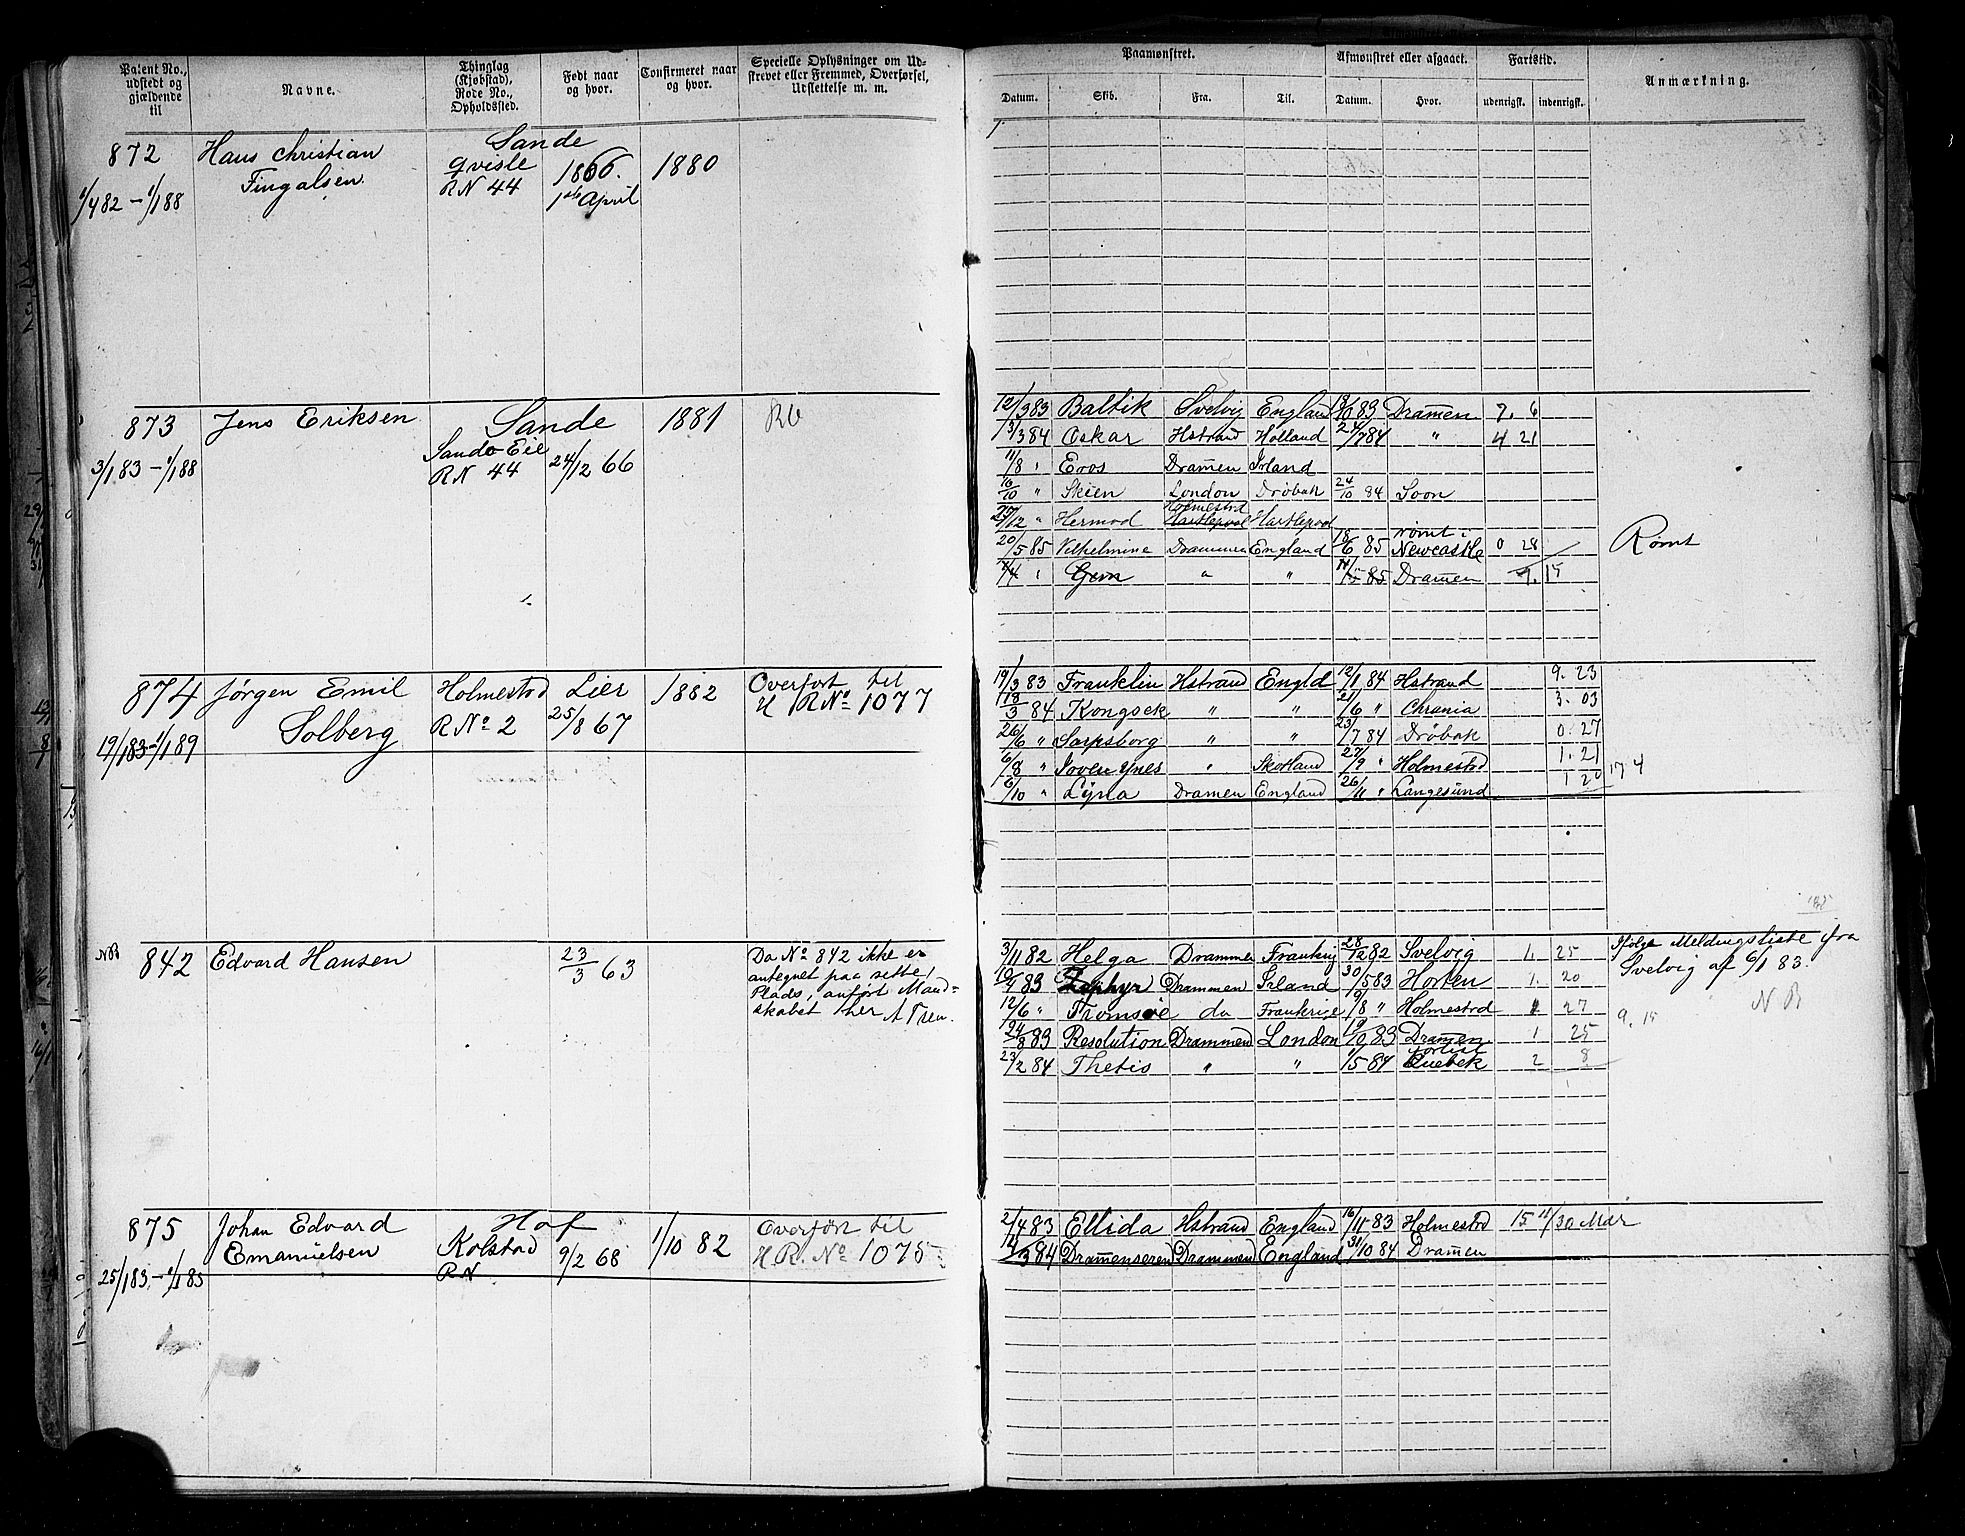 Patent No., udstedt og gjældende til
Navne.
Thinglag (Kjøbstad), Rode No., Opholdssted.
Født naar og hvor.
Confirmeret naar og hvor.
Specielle Oplysninger om Udskrevet eller Fremmed, Overførsel, Udslettelse m. m.
Paamønstret.
Afmønstret eller afgaaet.
Fartstid.
Anmærkning.
Datum. Skib. Fra. Til. Datum. Hvor. udenrigsk. indenrigsk.
872 Hans Christian Sande
Fingalsen qvisle 1866. 1880
1/4 82 – 1/1 88 RN 44 1ste April
873 Jens Eriksen Sande 1881
3/1 83 – 1/1 88 Sande Eie
RN 44 24/12 66
12/3 83 Baltik Svelvig England 18/10 83 Dramen 7. 6
13/3 84 Oskar Hstrand Holland 24/7 84 " 4 21
11/8 " Eros Dramen Irland
16/10 " Skien London Drøbak 24/10 84 Soon
/12 " Hermod Holmestrd Hartlepool Hartlepool
20/5 85 Vilhelmine Drammen England 18/6 85 rømt i Newcastle 0 28
Rømt
/4 " Gem " " 85 Dramen 9. 15
874 Jørgen Emil Holmestrd Lier 1882 Overført til
Solberg RNo 2 25/8 67 H RNo 1077
19/1 83 – 1/1 89
19/3 83 Franklin Hstrand Engld 12/1 84 Hstrand 9. 23
18/3 84 Kongsek " " 21/6 " Chrania 3. 03
26/6 " Sarpsborg " " 23/7 84 Drøbak 0. 27
6/8 " " Skotland 27/9 " Holmestrd 1. 21
6/10 " Lyna Dramen England 26/11 " Langesund 1 20 17 4
NB 842 Edvard Hansen 23/3 63
Da No 842 ikke er
antegnet paa sette
Plads, anført Mand-
skabet her
3/11 82 Helga Drammen Frankrig 28/12 82 Svelvig 1. 25
Ifølge Meldingsliste fra
Svelvig af 6/1 83.
19/4 83 Zephyr Drammen Irland 30/5 83 Horten 1. 20
N B
12/6 " Tromsøe do Frankrige 9/8 " Holmestrd 1 27
9. 15
24/8 83 Resolution Drammen London 19/10 83 Dramen 1 25
23/2 84 Thetis " " 1/5 84 Forlist Quebek 2 8
875 Johan Edvard Hof
Emanuelsen Kolstad 9/2 68 1/10 82
RN
Overført til
H R. No 1075
25/1 83 – 1/1 85
2/4 83 Ellida Hstrand England 16/11 83 Holmestrd 15 11/30 Mdr
12/3 84 Dramenseren Drammen England 31/10 84 Dramen